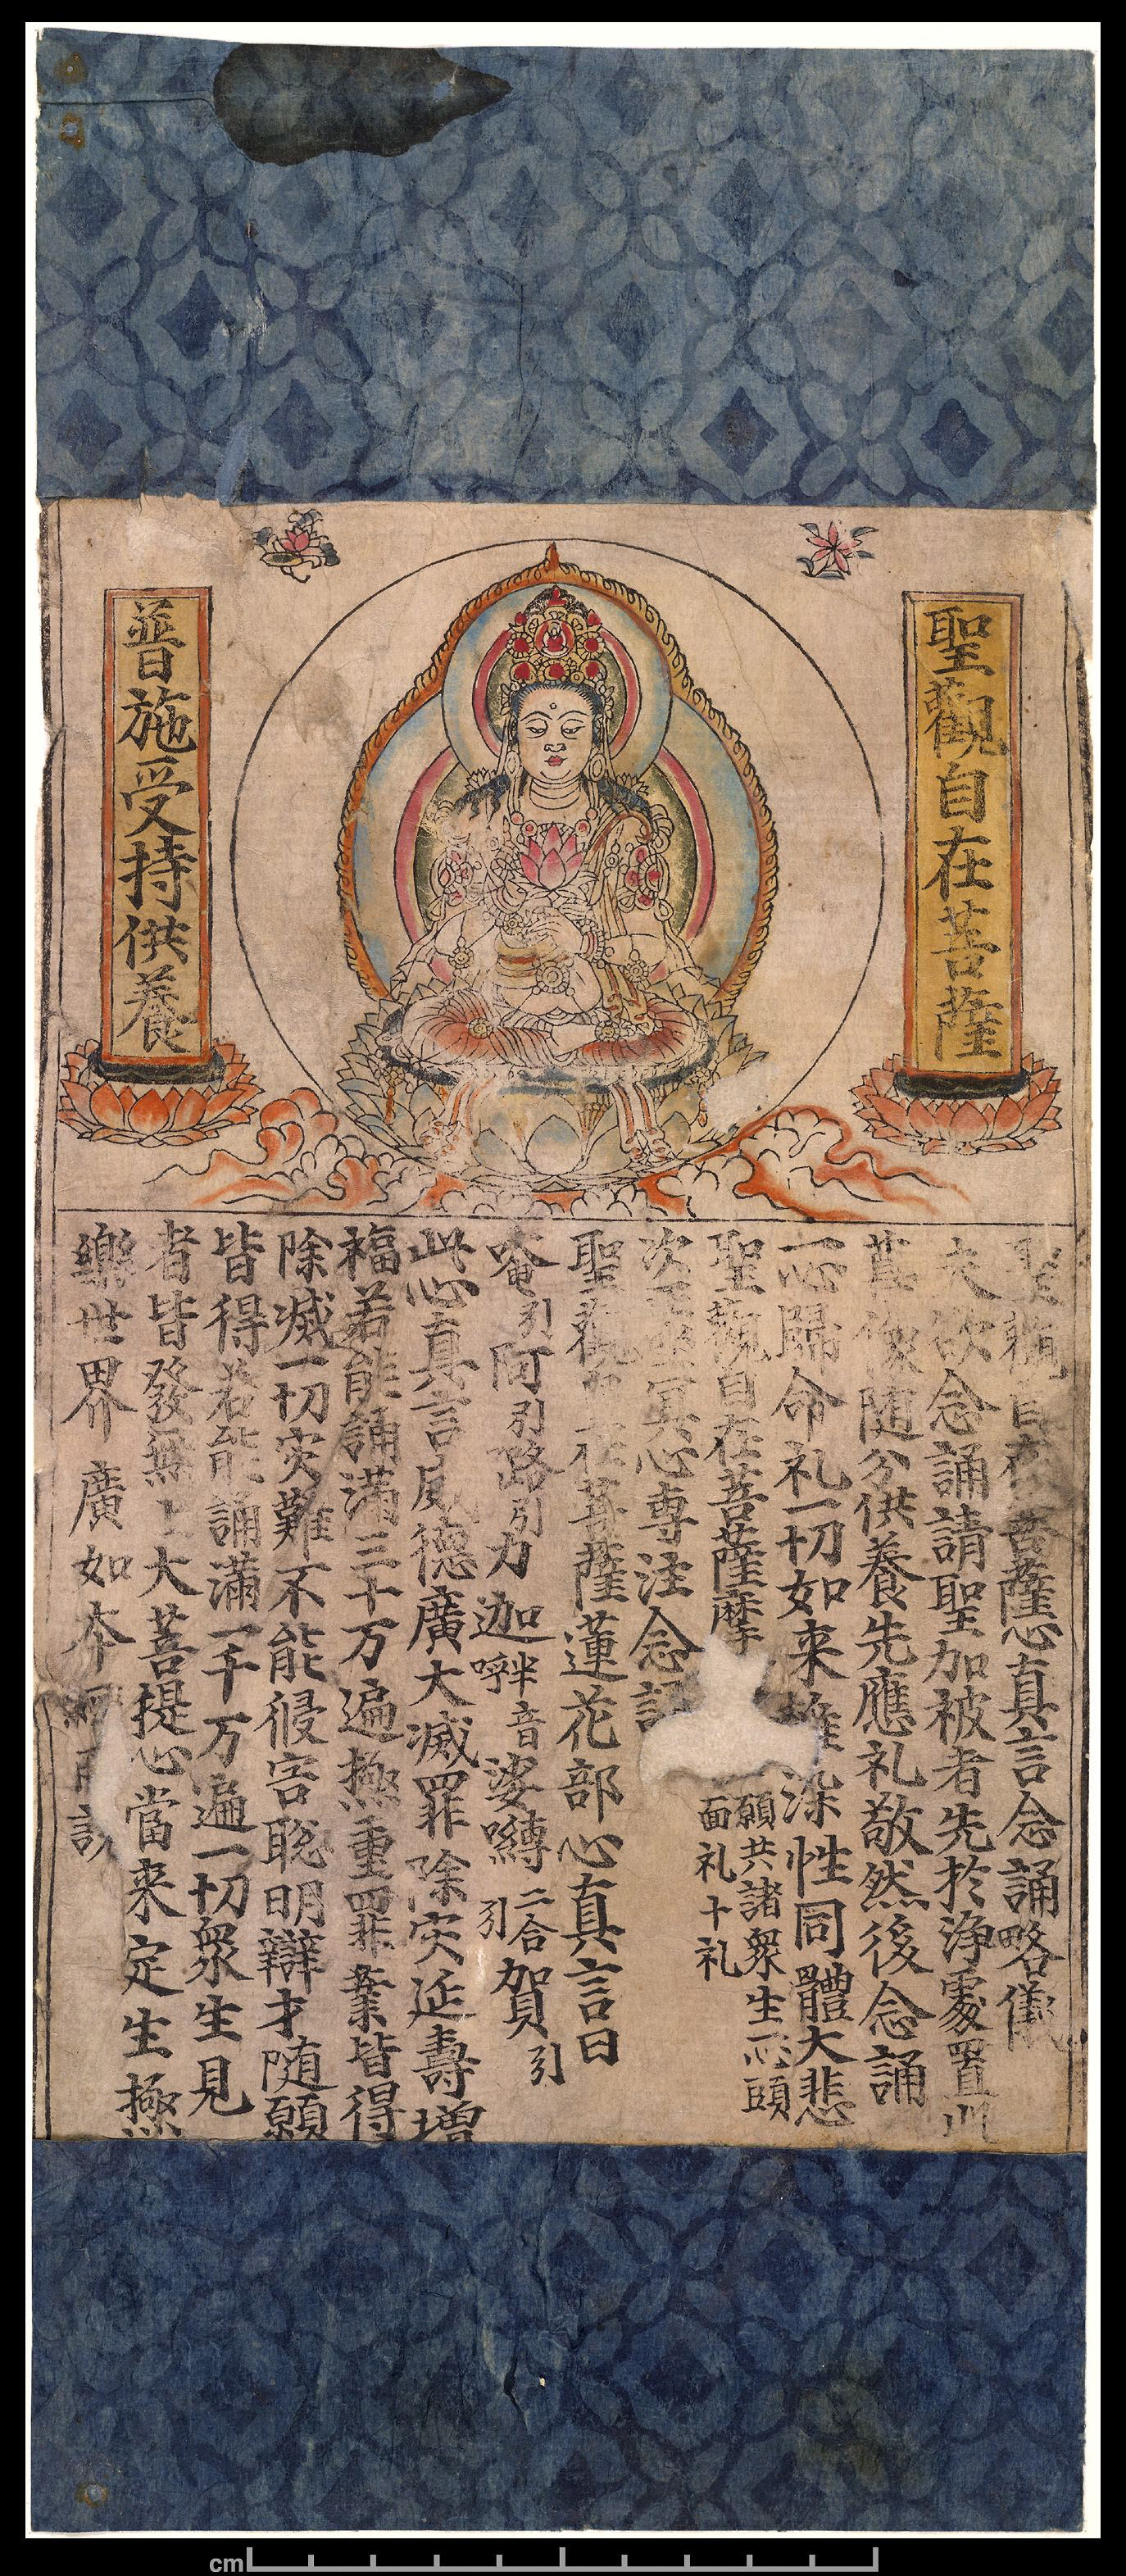 聖觀自在菩薩
普施受持供養
聖觀自在菩薩心真言念誦略儀
夫欲念誦請聖加被者先於淨處置此
菩薩像隨分供養先應礼敬然後念誦
一心歸命礼一切如来離染性同體大悲
聖觀自在菩薩摩
願共諸衆生一心頭
面礼十礼
次冥心專注念
聖觀自在菩薩蓮花部心真言曰
唵引阿引路引力迦半音呼娑嚩二合引賀引
此心真言威德廣大滅罪除灾延壽增
福若能誦滿三十万遍極重罪業皆得
除滅一切灾難不能侵害聡明辯才隨願
皆得若能誦滿一千万遍一切衆生見
者皆發無上大菩提心當来定生極
樂世界 廣如本